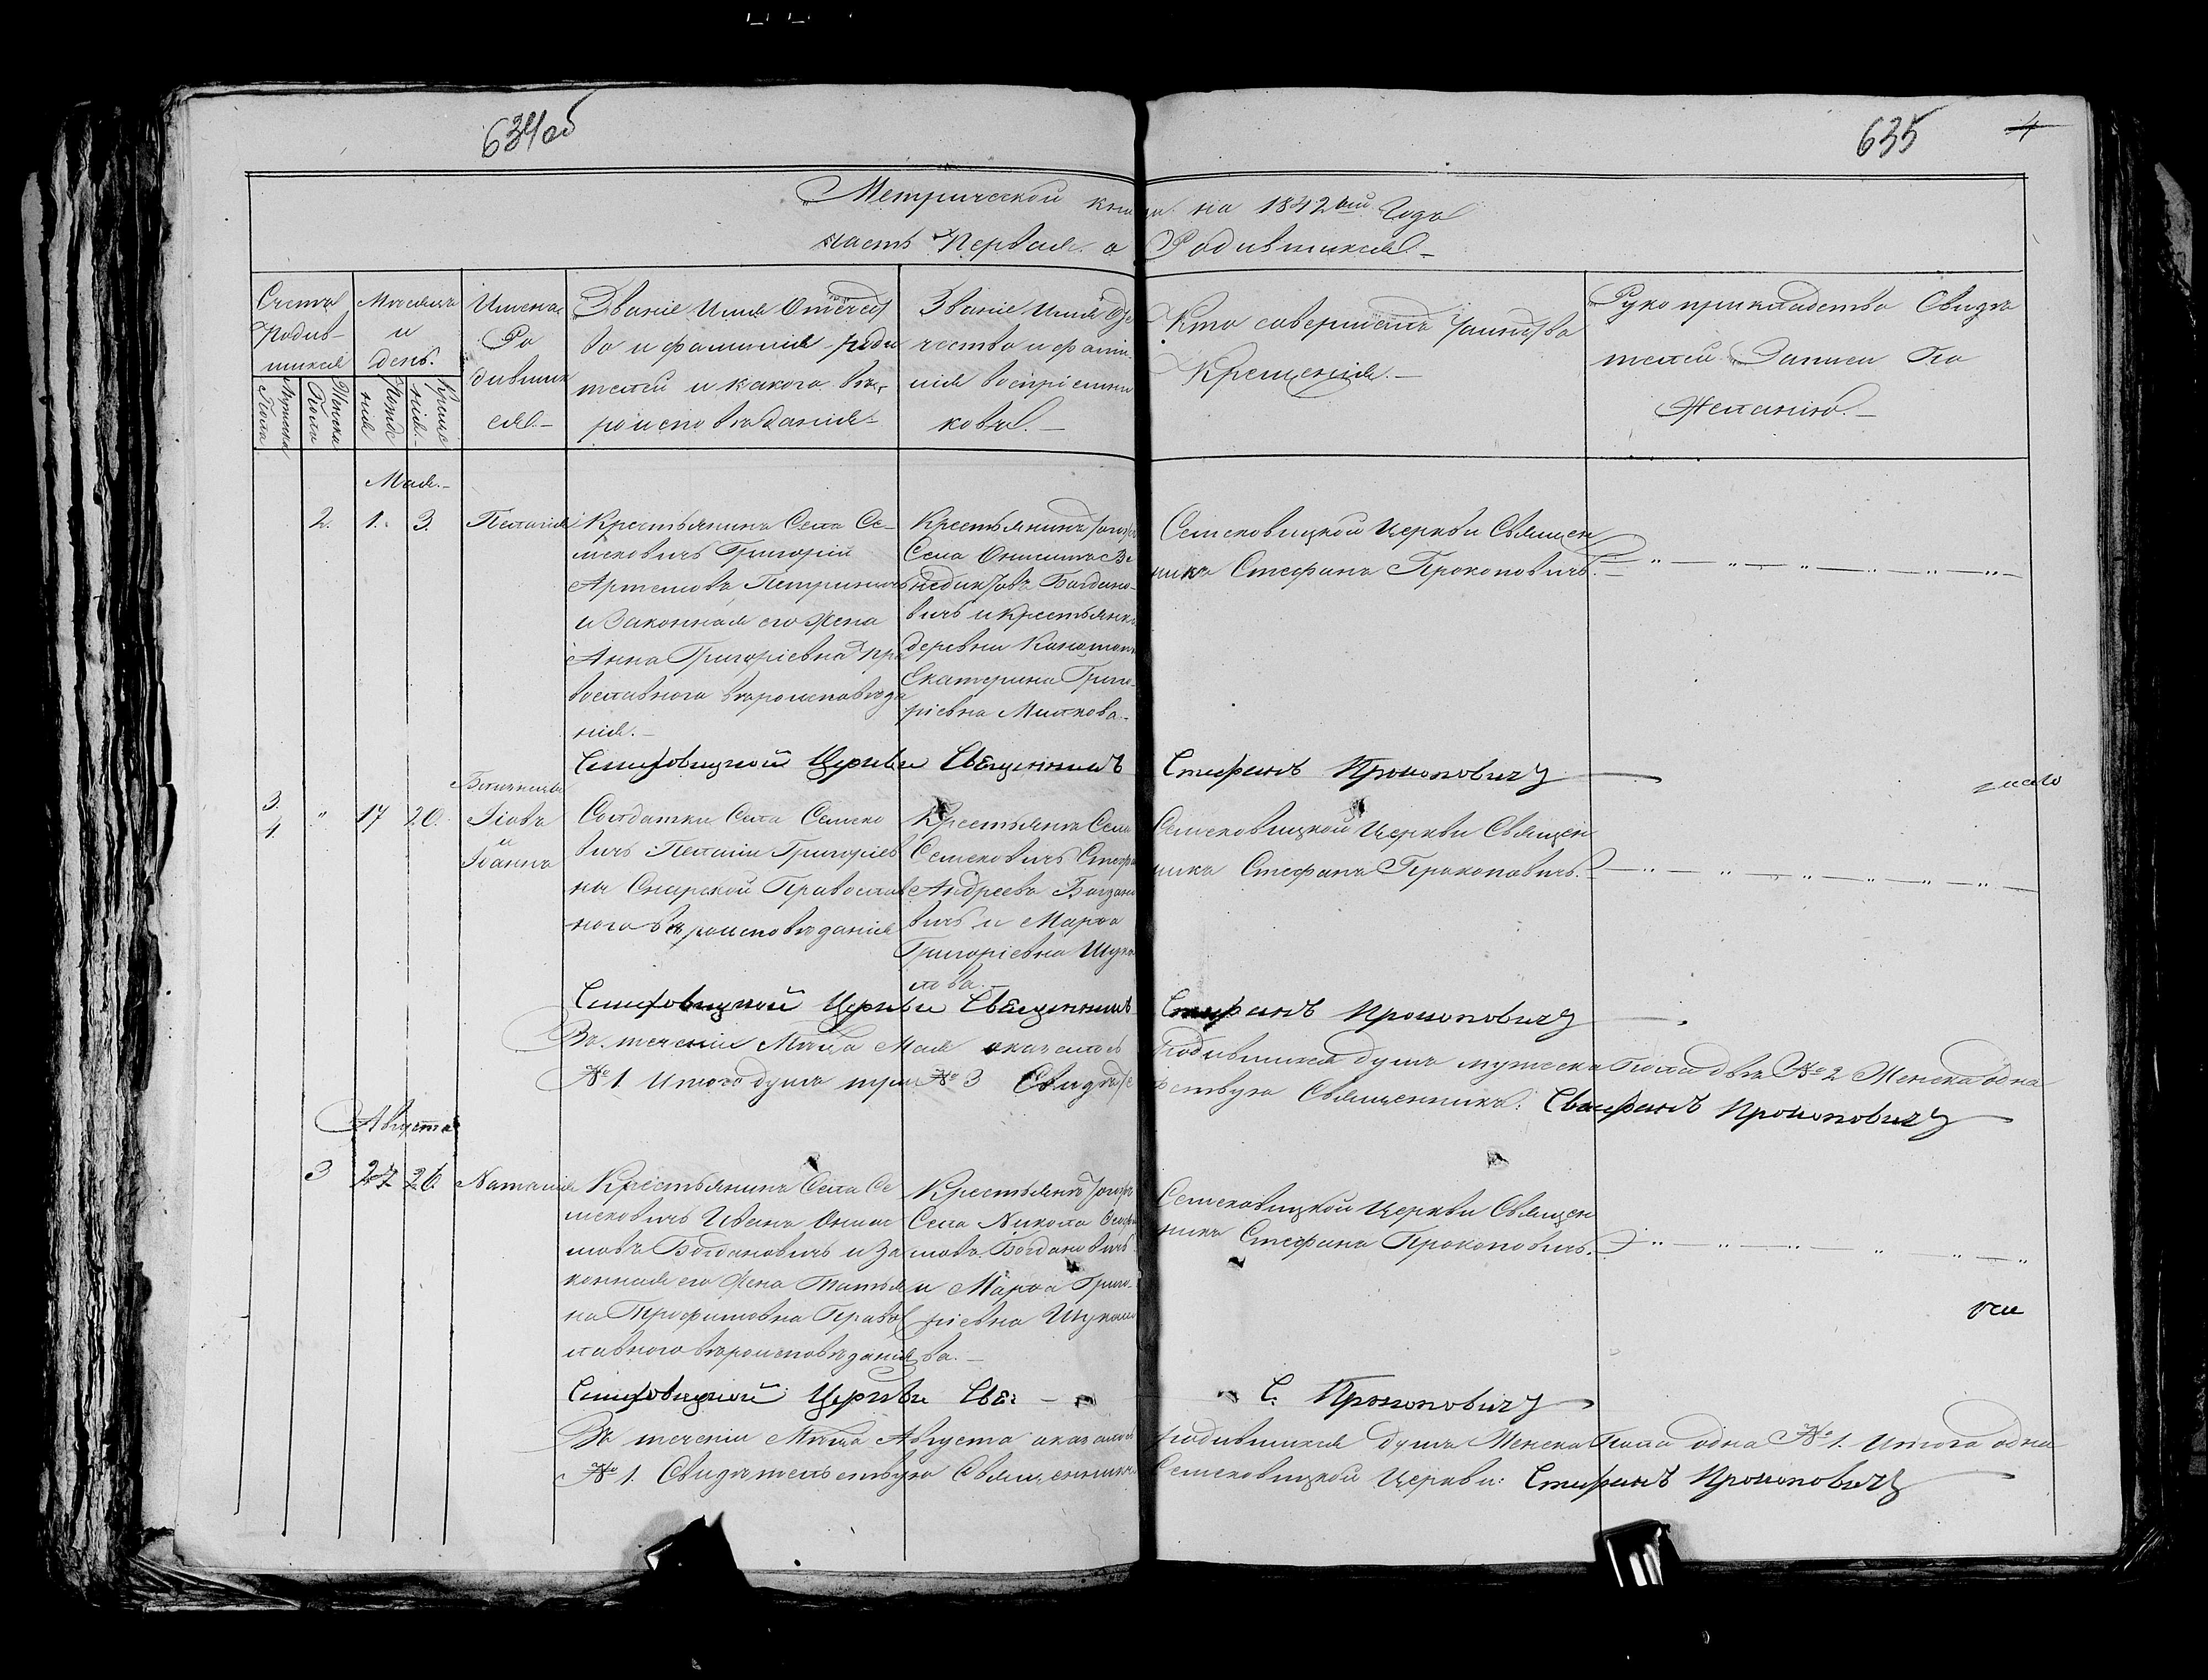 634об
635
4
Метрической книги на 1842ой Годъ
часть Первая о Родившихся
Счетъ Родив-шихся
Мужеска Пола
Женска Пола
Месяцъ и день
Рожде нія
Креще нія
Имена Ро дившихся
Званіе Имя Отечест во и фамилія роди телей и какого веро исповеданія
Званіе Имя Оте чество и фами лія воспріемни ковъ
Кто совершалъ таинство Крещенія
Рукоприкладство Свиде телей Записи По Желанію
Мая
2.
1.
3.
Пелагія
Крестьянинъ Села Се-
мековичъ Григорій
Артемовъ Петриничъ
и Законная его Жена
Анна Григоріевна Пра
вославного вероисповеда
нія
Крестьянинъ тогожъ
Села
Богдано-
вичъ и Крестьянка
деревни
Екатерина Григо-
ріевна
Семековицкой Церкви Священ
никъ Стефанъ Прокоповичъ
Семековицкой Церкви Священникъ Стефанъ Прокоповичъ
3.
4.
17
20.
Близнецы
Іовъ
и
Іоаннъ
Солдатки Села Семеко
вичъ Пелагіи Григоріев
ны Православ
ного вероисповеданія
Крестьянъ Села
Семековичъ Стефа
Андреевъ Богдано
вичъ и Марѳа
Григоріевна
Семековицкой Церкви Священ
никъ Стефанъ Прокоповичъ
Семековицкой Церкви Священникъ Стефанъ Прокоповичъ
Въ теченіи Мѣсяца Мая оказалось родившихся душъ мужеска Пола две № 2 Женска одна
№ 1. Итого душъ три № 3 Свидетельствуя Священникъ: Стефанъ Прокоповичъ
Августа
3
27
26
Наталія
Крестьянинъ Села Се
мековичъ Иванъ Они
мовъ Богдановичъ и За
конная его Жена Татья
на Трофимовна Правос
лавного вероисповеданія
Крестьянъ тогожъ
Села Никола
Богдановичъ
и Марѳа Григо-
ріевна
ва.
Семековицкой Церкви Священ
никъ Стефанъ Прокоповичъ
Семековицкой Церкви Свя: С. Прокоповичъ
Въ теченіи Мѣсяца Августа оказалось родившихся душъ Женска Пола одна № 1. Итого одна
№ 1. Свидетельствую Священникъ Семековицкой Церкви: Стефанъ Прокоповичъ